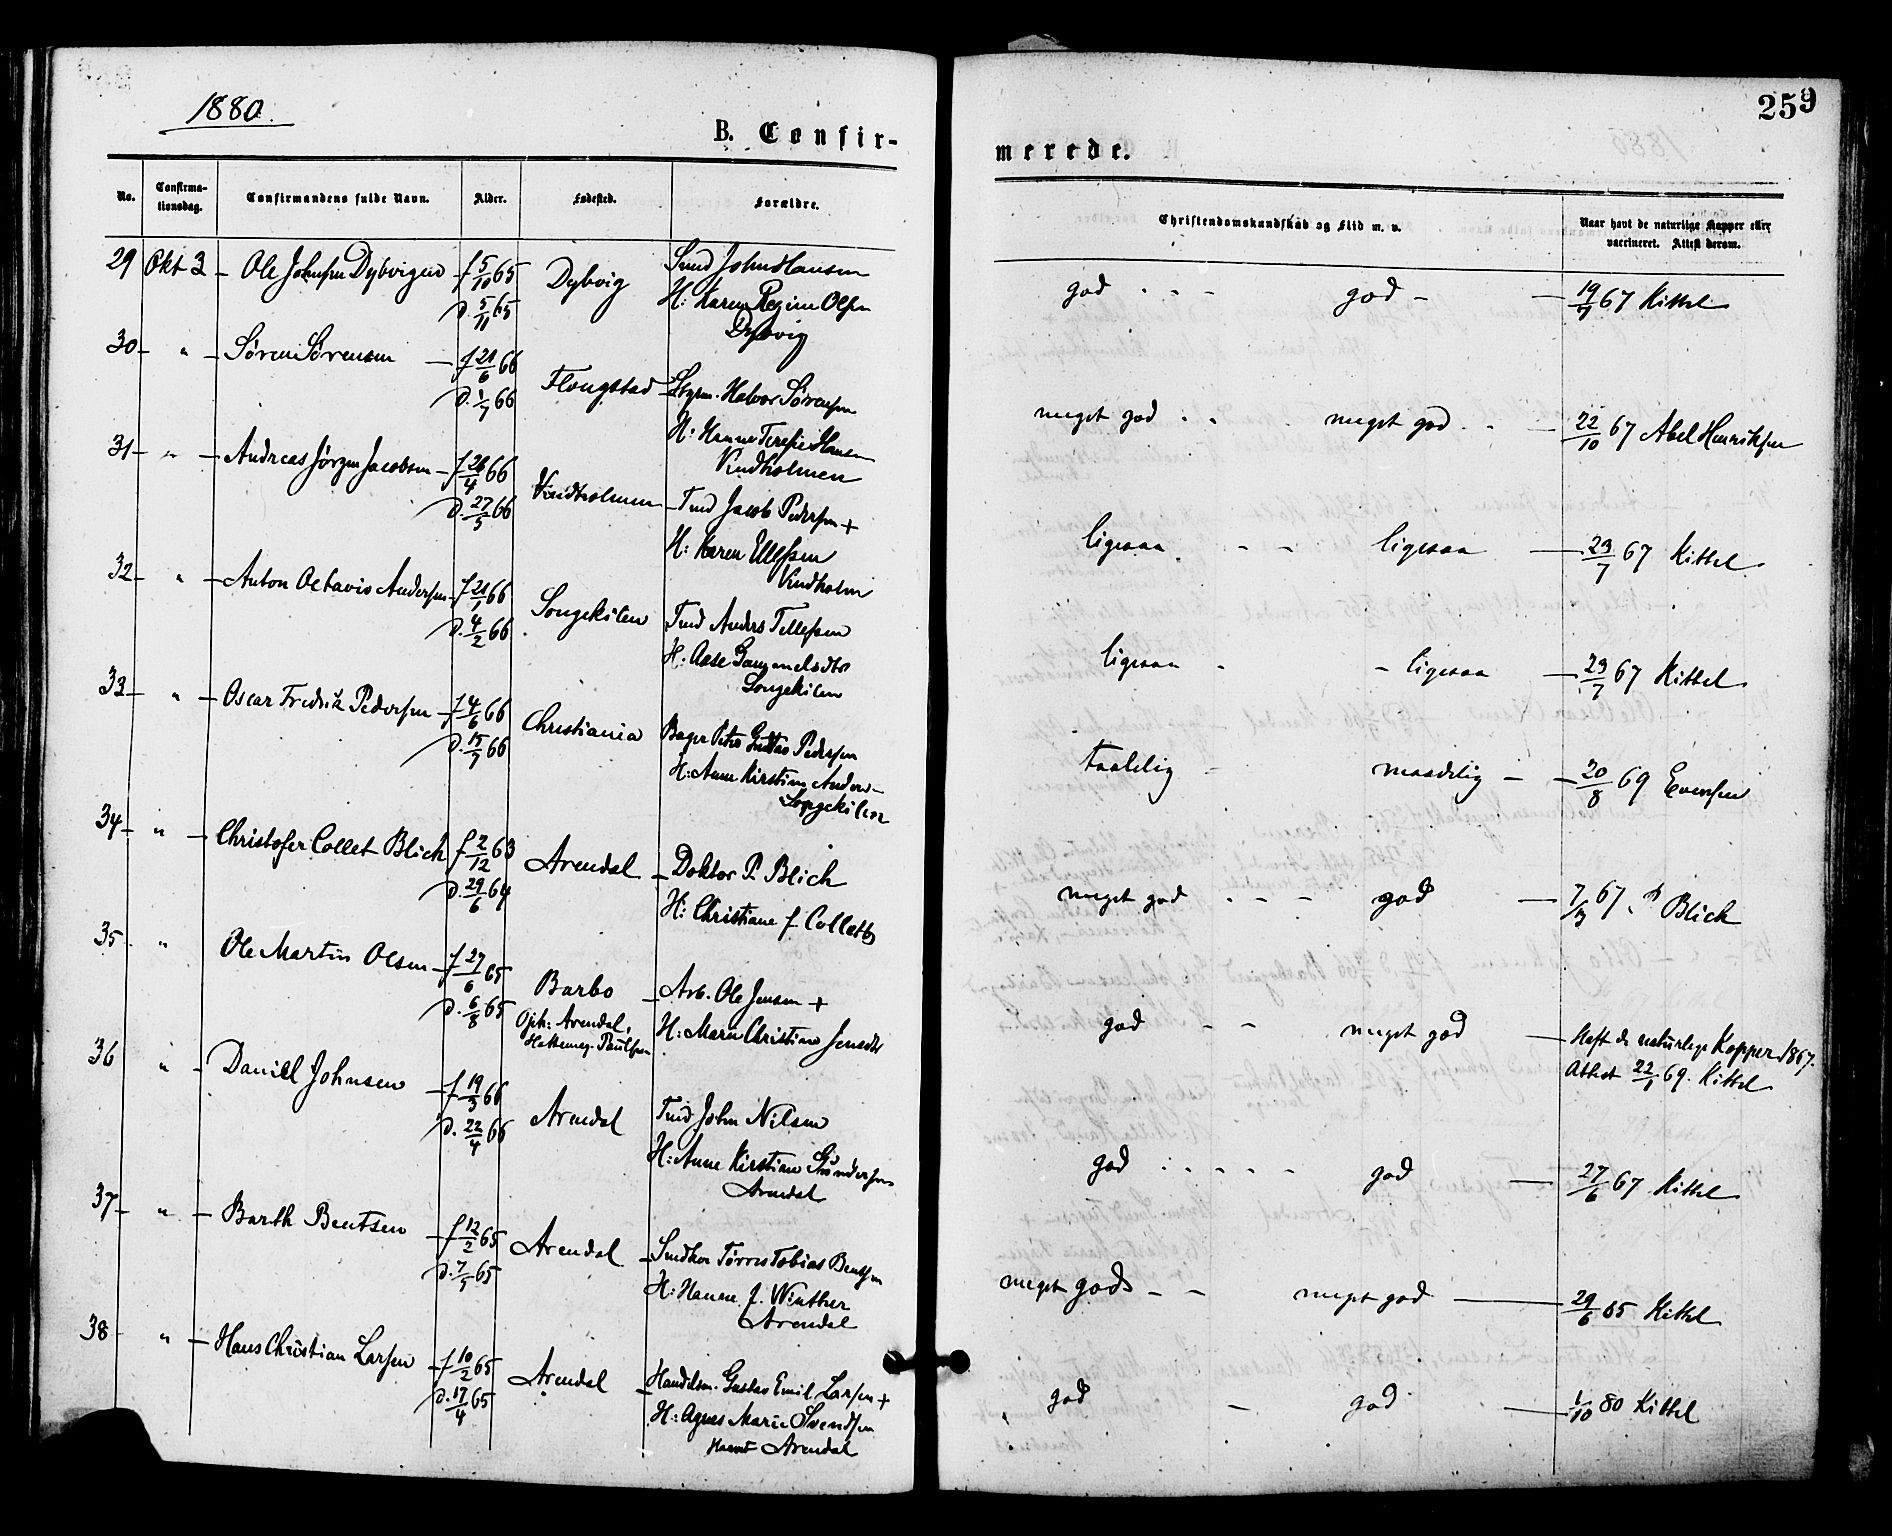 1880.
259
B. Confir-
merede.
No.
Confirma-
tionsdag.
Confirmandens fulde Navn.
Alder.
Fødested.
Forældre.
Christendomskundskab og Flid m. v.
Naar havt de naturlige Kopper eller
vaccineret. Attest derom.
29 Okt 3 - Ole Johnsen Dybvigen - f 5/10 65 Dybvig
d. 5/11 65
John Hansen
H: Karen Regine Olsen
Dybvig
god - god - 19/7 67 Kittel
30 - " - Søren Sørensen - f 21/6 66 Flongstad
d. 1/7 66
Halvor Sørensen
H: Hanne Teresie Hansen
Vindholmen
meget god meget god - 22/10 67 Abel Henriksen
31 - " - Andreas Jörgen Jacobsen - f 26/4 66 Vindholmen
d. 27/5 66
Tmd Jacob Pedersen +
H: Karen Ellefsen
Vindholm
ligesaa - - ligesaa - 23/7 67 Kittel
32 - " - Anton Octavis Andersen - f 21/1 66 Songekilen
d. 4/2 66
Tmd Anders Tellefsen
H: Aase Gammelsdtr
Songekilen
ligesaa - - ligesaa - 23/7 67 Kittel
33 - " - Oscar Fredrik Pedersen - f 4/6 66 Christiania
d. 15/7 66
Bager Peter Gustav Pedersen
H: Anne Kirstine Anders-
Songekilen
taalelig - maadelig - 20/8 69 Evensen
34 - " - Christofer Collet Blich f 2/12 63 Arendal
d. 29/6 64
- Doktor P. Blich
H: Christiane f. Collett
meget god - - - god - 7/3 67 P Blich
35 " Ole Martin Olsen - f 27/6 65 Barbo
d. 6/8 65
Oph: Arendal,
Paulsen
- Arb. Ole Jensen +
H: Maren Christine Jensdtr
god - - meget god - Haft de naturlige Kopper 1867.
Attest 22/1 69. Kittel
36 " - Daniel Johnsen - f 19/3 66 Arendal
d. 22/4 66
Tmd John Nilsen
H: Anne Kirstine Gundersen
Arendal
god - - god - 27/6 67 Kittel
37 - " - Barth Bentsen - f 12/2 65 Arendal
d. 7/5 65
Tørres Tobias Bentsen
H: Hanne f. Winther
Arendal
meget god - - meget god - 29/6 65 Kittel
38 " - Hans Christian Larsen - f 10/2 65 Arendal
d. 17/4 65
- Handelsm. Gustav Emil Larsen +
H: Agnes Marie Svendsen
Arendal
god - god - 1/10 80 Kittel